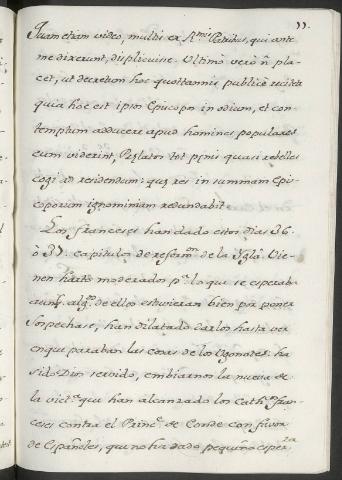 55.
Quam etiam video, multis ex R.mis Patribus, qui ante
me dixerunt, displicuisse. Ultimo vero n̄ pla-
cet, ut decretum hoc quottannis publice recitetr
quia hoc est ipsos Episcopos in odium, et con-
temptum adducere apud homines populares
cum viderint, Prelatos tot penis quasi rebelles
cogi ad residendum: que res in summam Epis-
coporum ignominiam redundabit.
Los franceses han dado estos dias 36.
ò 37. capitulos de reform.on de la Yglâ. Vie-
nen harto moderados p.a lo que se esperab.
aunq. alg.os de ellos estuvieran bien por poner
Sospechase, han dilatado darlos hasta ver
en que paraban las cosas de los Ugonotes: ha
sido Dios servido, embiarnos la nueva de
la vict.a que han alcanzado los Cath.cos fran-
ceses contra el Princ.e de Conde con favor
de Españoles, que no ha dado pequeño esper.